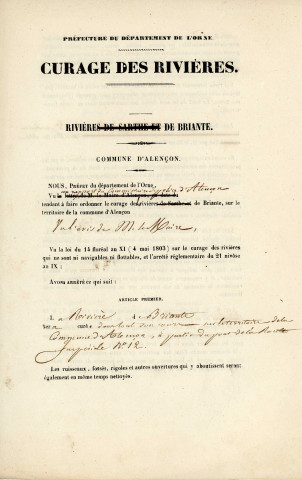 PRÉFECTURE DU DÉPARTEMENT DE L'ORNE
CURAGE DES RIVIÈRES.
RIVIÈRES DE SARTHE ET DE BRIANTE.
COMMUNE D'ALENÇON.
NOUS, Préfet du département de l'Orne,
Vu le rapport du Commissaire de police d'Alençon
tendant à faire ordonner le curage des rivières de Sarthe et de Briante, sur le
territoire de la commune d'Alençon
Vu l'avis de M. le Maire,
Vu la loi du 14 floréal an XI (4 mai 1803) sur le curage des rivières
qui ne sont ni navigables ni flottables, et l'arrêté réglementaire du 21 nivôse
an IX ;
AVONS ARRÊTÉ ce qui suit :
ARTICLE PREMIER.
La Rivière de Briante
sera curée dans tout son cours sur le territoire de la
Commune d'Alençon, à partir du pont de la
jusqu'à le N.º 12.
Les ruisseaux, fossés, rigoles et autres ouvertures qui y aboutissent seront
également en même temps nettoyés.